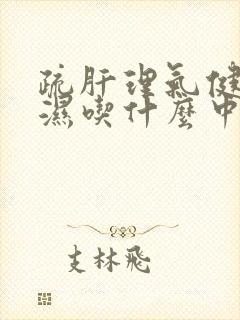 疏肝理氣健
濕喫什麼中
支林飛